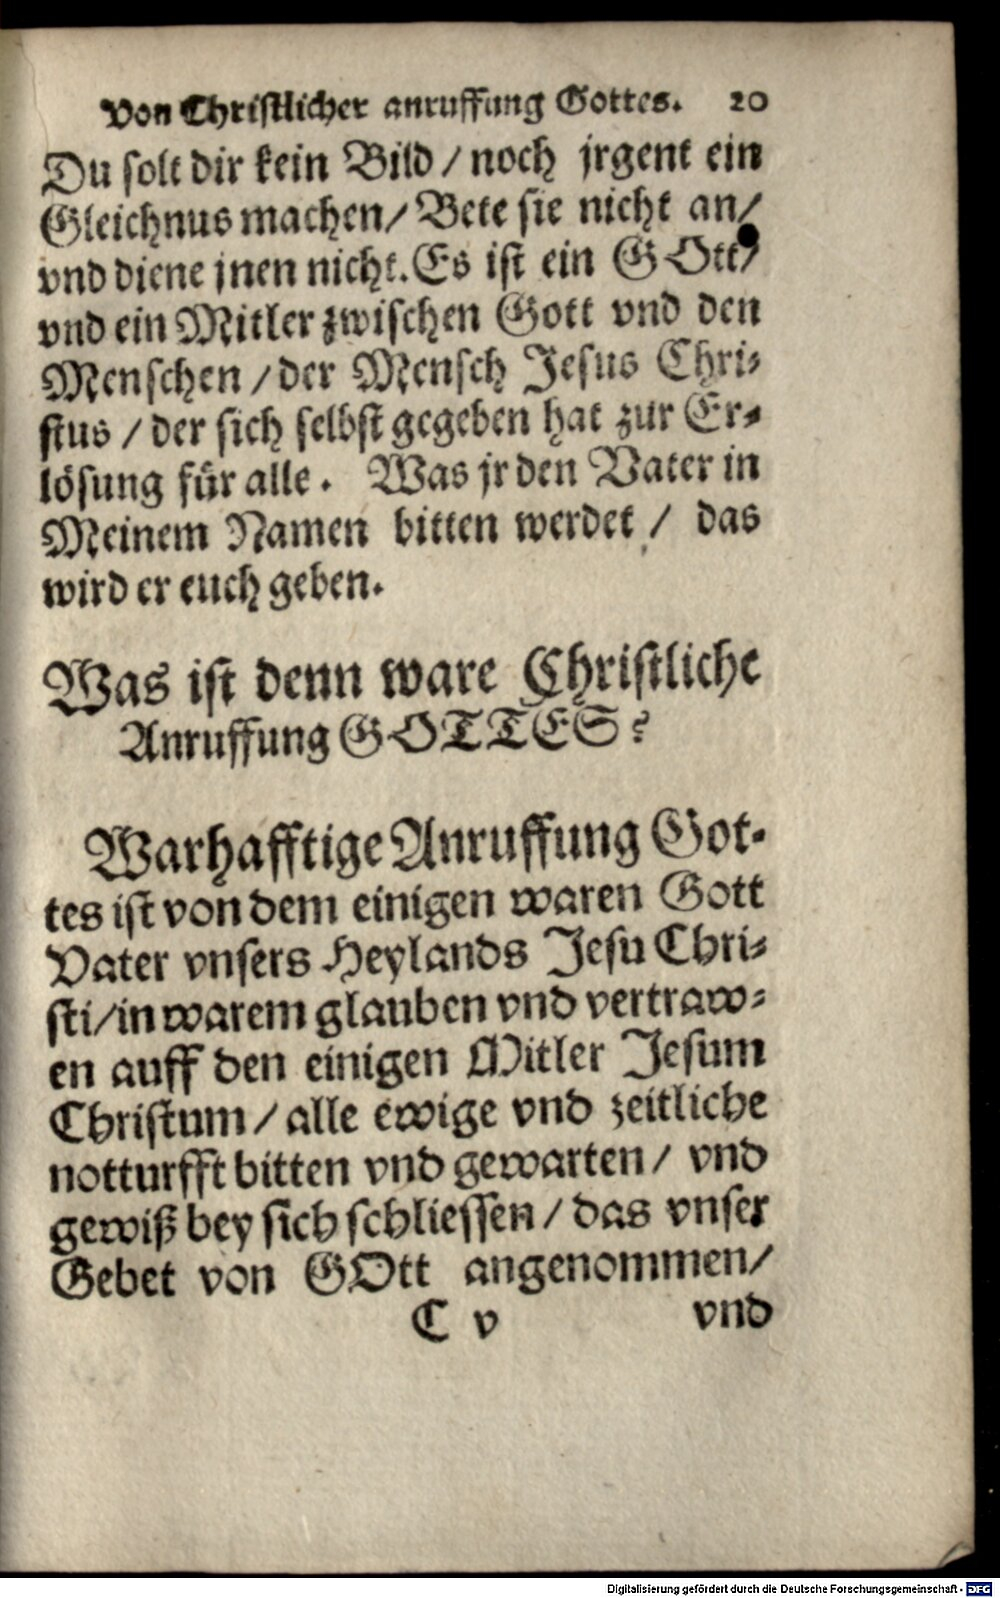 Von Christlicher anruffung Gottes. 20
Du solt dir kein Bild / noch jrgent ein
Gleichnus machen / Bete sie nicht an /
vnd diene jnen nicht. Es ist ein GOtt /
vnd ein Mitler zwischen Gott vnd den
Menschen / der Mensch Jesus Chri⸗
stus / der sich selbst gegeben hat zur Er⸗
lösung für alle. Was jr den Vater in
Meinem Namen bitten werdet / das
wird er euch geben.
Was ist denn ware Christliche
Anruffung GOTTES?
Warhafftige Anruffung Got⸗
tes ist von dem einigen waren Gott
Vater vnsers Heylands Jesu Chri⸗
sti / in warem glauben vnd vertraw⸗
en auff den einigen Mitler Jesum
Christum / alle ewige vnd zeitliche
notturfft bitten vnd gewarten / vnd
gewiß bey sich schliessen / das vnser
Gebet von GOtt angenommen /
C v vnd
Digitalisierung gefördert durch die Deutsche Forschungsgemeinschaft - DFG